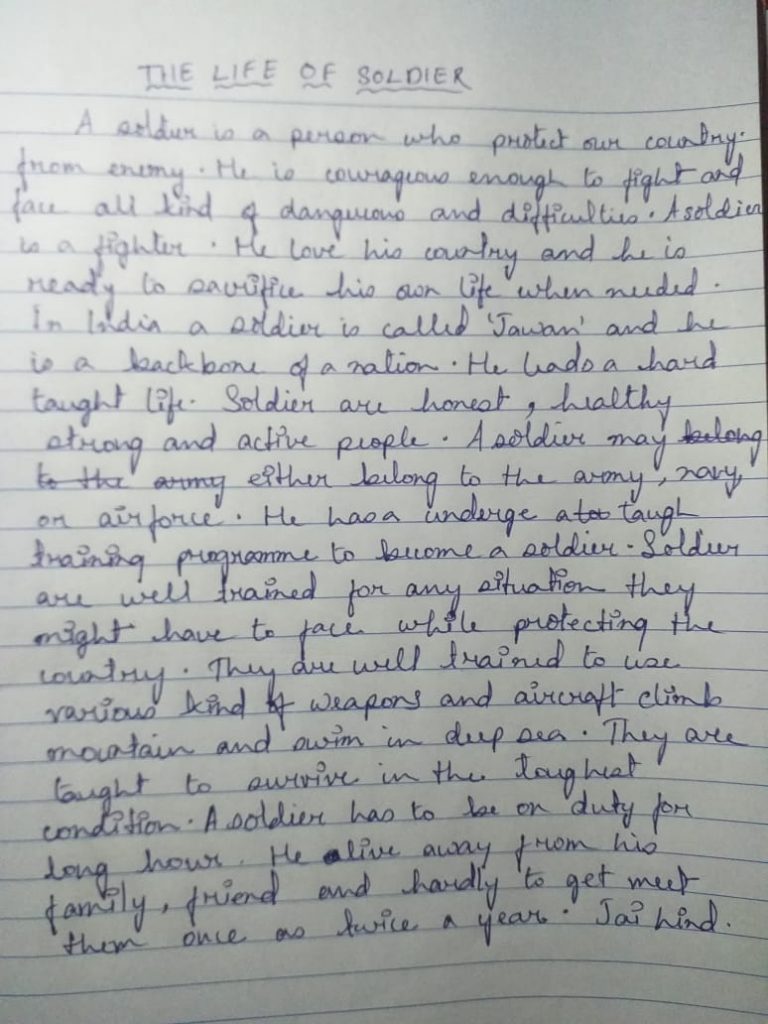 THE LIFE OF SOLDIER
A soldier is a person who protect our country.
from enemy. He is courageous enough to fight and
face all kind of dangerous and difficulties. A soldier
is a fighter. He love his country and he is
ready to sacrifice his own life when needed.
In India a soldier is called 'Jawan' and he
is a backbone of a nation. He leads a hard
taught life. Soldier are honest, healthy
strong and active people. A soldier may belong
to the army either belong to the army, navy,
or airforce. He has a underge a to taugh
training programme to become a soldier. Soldier
are well trained for any situation they
might have to face while protecting the
country. They are well trained to use
various kind of weapons and aircraft climb
mountain and swim in deep sea. They are
taught to survive in the toughest
condition. A soldier has to be on duty for
long hour. He alive away from his
family, friend and hardly to get meet
them once as twice a year. Jai hind.